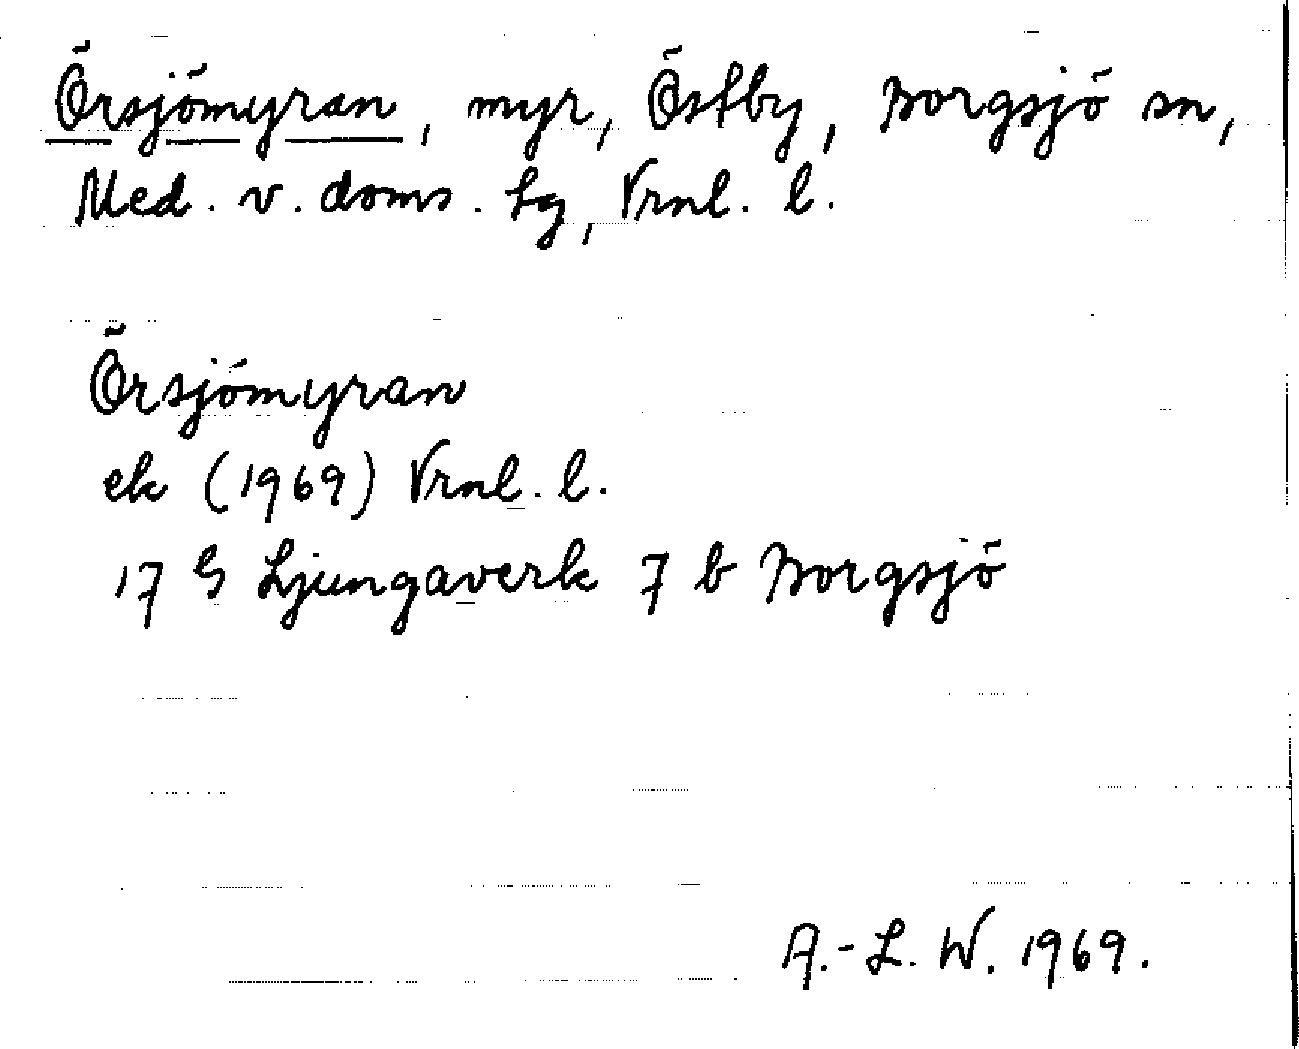 Örsjömyran, myr, Östby, Borgsjö sn,
Med. v. doms. lg, Vrnl. l.
Örsjömyran
ek (1969) Vrnl. l.
17 G Ljungaverk 7 b Borgsjö
A.-L. W. 1969.